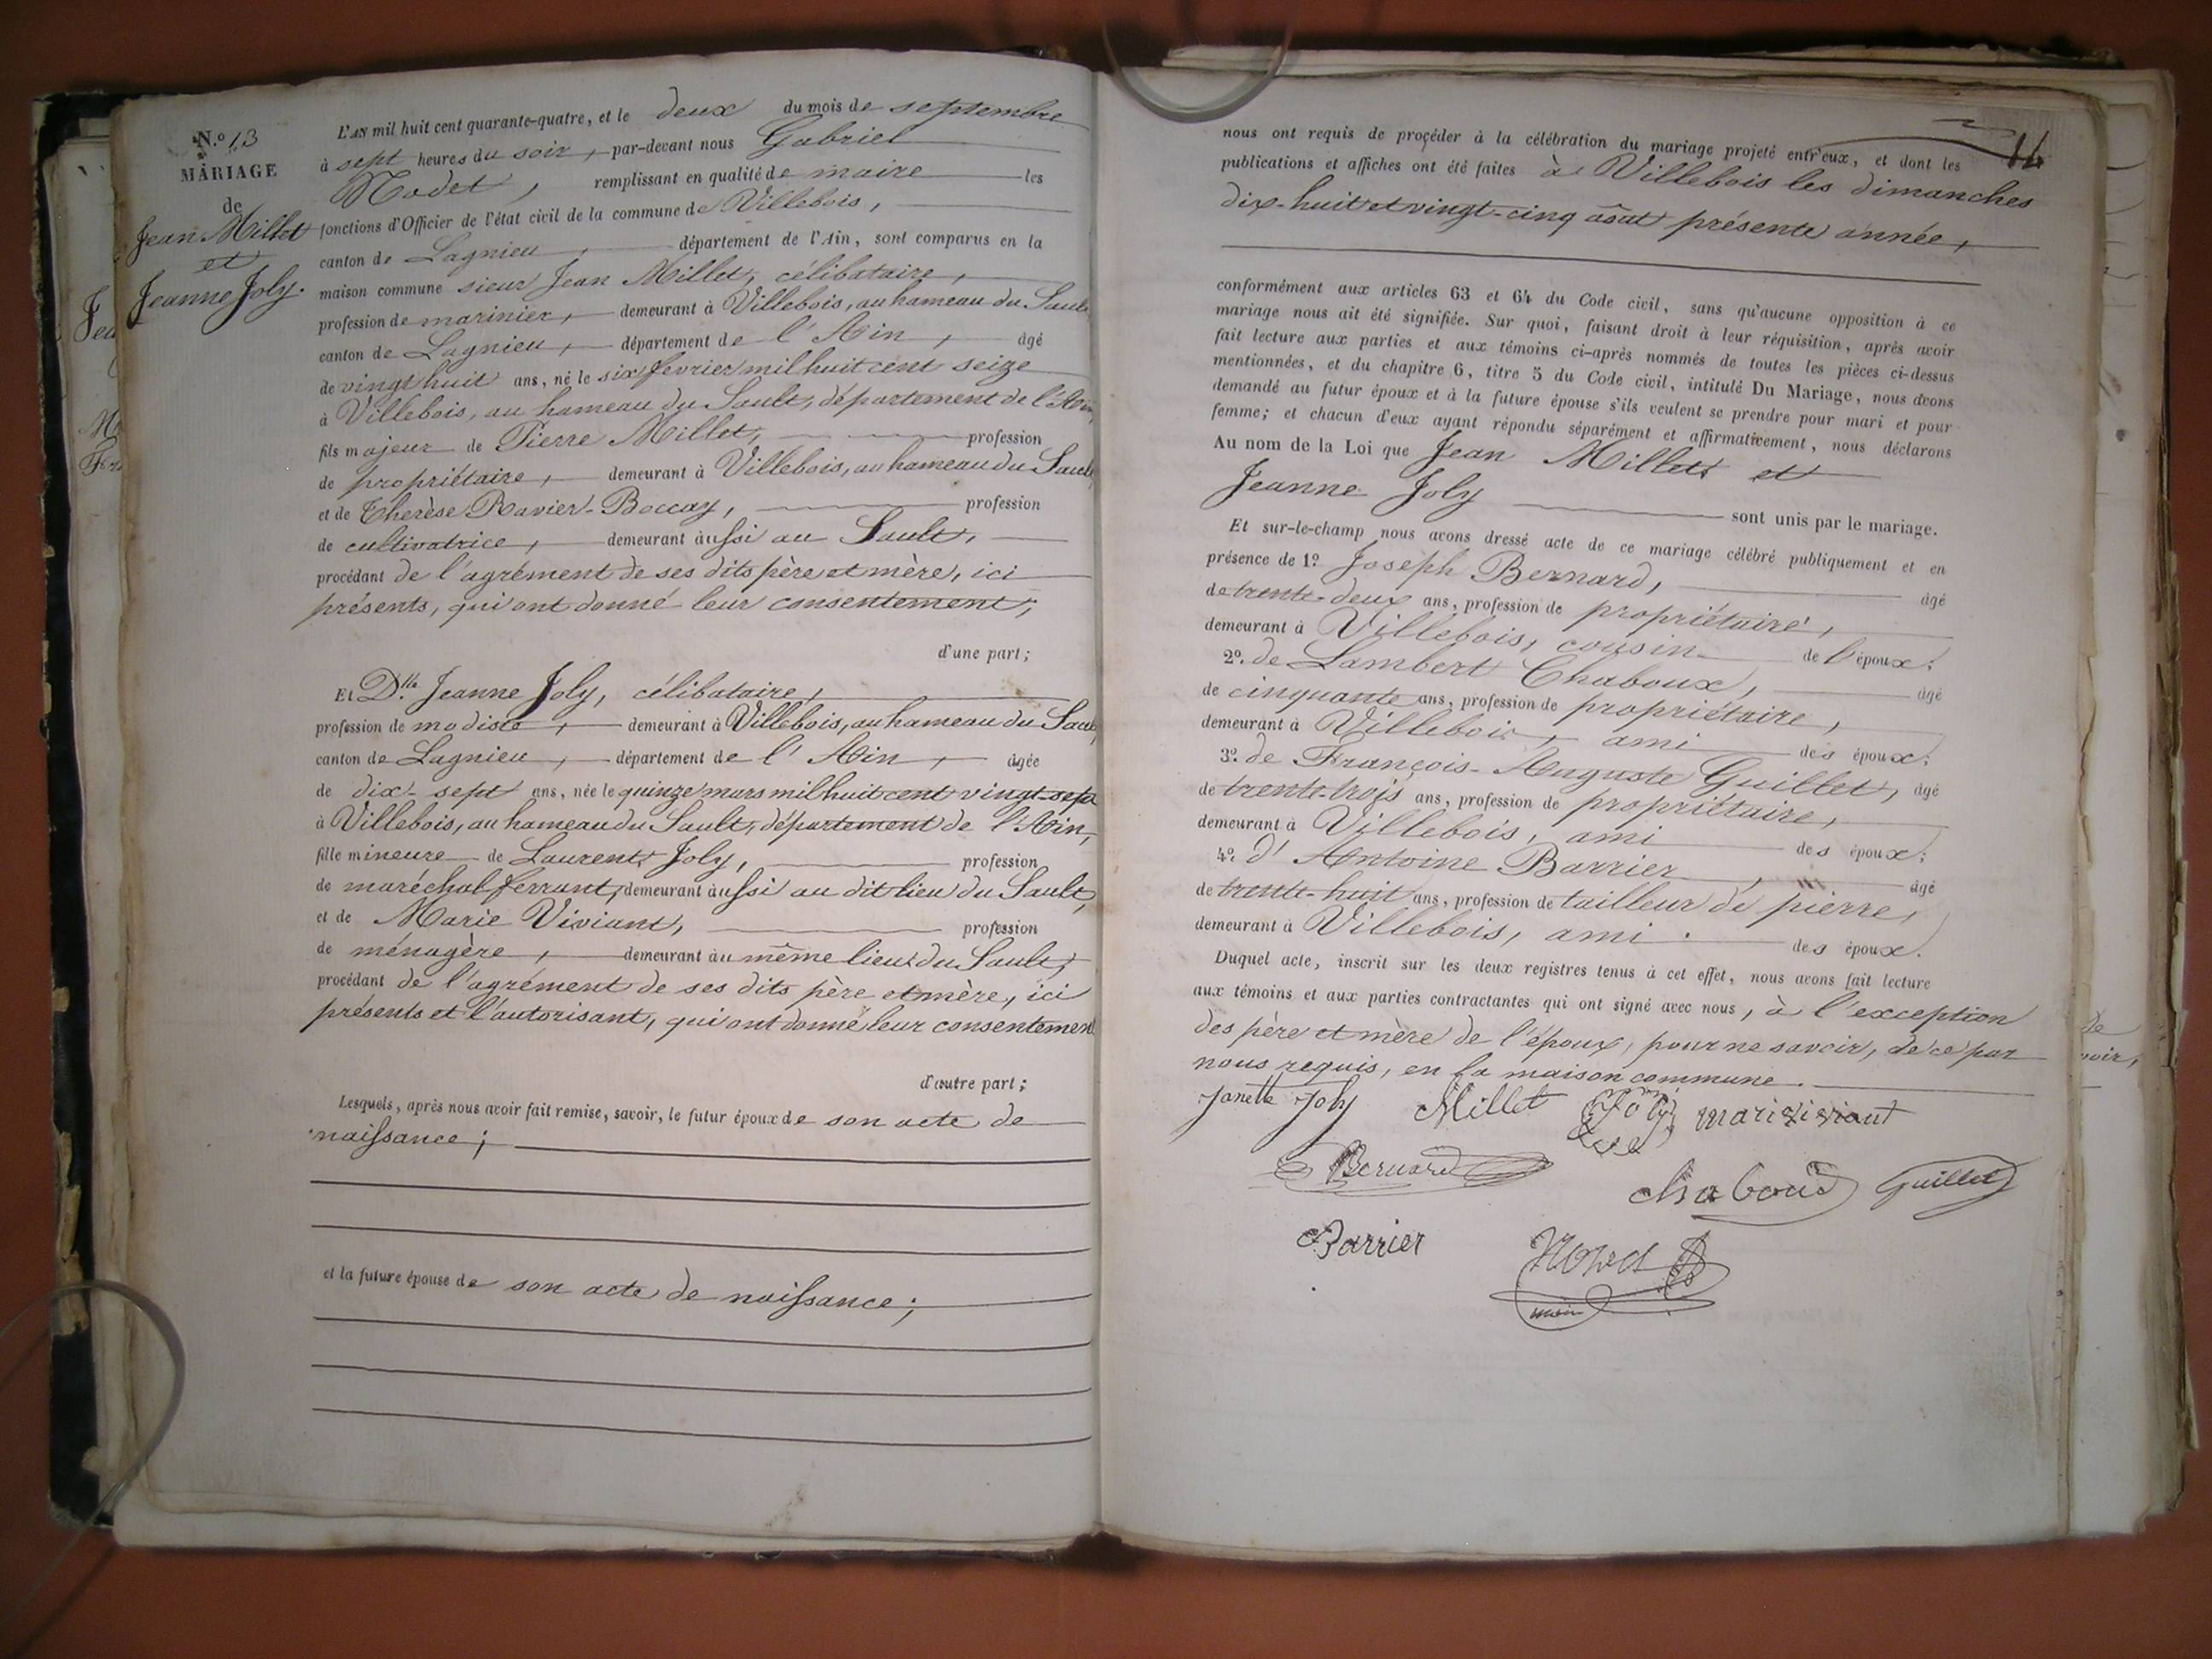 N.º 13
MARIAGE
de
Jean Millet
et
Jeanne Joly.
L'AN mil huit cent quarante-quatre, et le deux du mois de septembre
à sept heures du soir, par-devant nous Gabriel
Nodet, remplissant en qualité de maire les
fonctions d'Officier de l'état civil de la commune de Villebois,
canton de Lagnieu, département de l'Ain, sont comparus en la
maison commune sieur Jean Millet, célibataire,
profession de marinier, demeurant à Villebois, au hameau du Sault
canton de Lagnieu, département de l'Ain, âgé
de vingt huit ans, né le six février mil huit cent seize
à Villebois, au hameau du Sault, département de l'Ain,
fils majeur de Pierre Millet, profession
de propriétaire, demeurant à Villebois, au hameau du Sault
et de Therèse Ravier-Boccay, profession
de cultivatrice, demeurant aussi au Sault,
procédant de l'agrément de ses dits père et mère, ici
présents, qui ont donné leur consentement;
d'une part;
Et D.lle Jeanne Joly, célibataire,
profession de modiste, demeurant à Villebois, au hameau du Sault
canton de Lagnieu, département de l'Ain, âgée
de dix-sept ans, née le quinze mars mil huit cent vingt-sept
à Villebois, au hameau du Sault, département de l'Ain,
fille mineure de Laurent Joly, profession
de maréchal ferrant, demeurant aussi au dit lieu du Sault,
et de Marie Viviant, profession
de ménagère, demeurant au même lieu du Sault,
procédant de l'agrément de ses dits père et mère, ici
présents et l'autorisant, qui ont donné leur consentement
d'autre part;
Lesquels, après nous avoir fait remise, savoir, le futur époux de son acte de
naissance;
et la future épouse de son acte de naissance;
14
nous ont requis de procéder à la célébration du mariage projeté entr'eux, et dont les
publications et affiches ont été faites à Villebois les dimanches
dix-huit et vingt-cinq août présente année,
conformément aux articles 63 et 64 du Code civil, sans qu'aucune opposition à ce
mariage nous ait été signifiée. Sur quoi, faisant droit à leur réquisition, après avoir
fait lecture aux parties et aux témoins ci-après nommés de toutes les pièces ci-dessus
mentionnées, et du chapitre 6, titre 5 du Code civil, intitulé Du Mariage, nous avons
demandé au futur époux et à la future épouse s'ils veulent se prendre pour mari et pour
femme; et chacun d'eux ayant répondu séparément et affirmativement, nous déclarons
Au nom de la Loi que Jean Millet et
Jeanne Joly sont unis par le mariage.
Et sur-le-champ nous avons dressé acte de ce mariage célébré publiquement et en
présence de 1º. Joseph Bernard, âgé
de trente-deux ans, profession de propriétaire,
demeurant à Villebois, cousin de l'époux;
2º. de Lambert Chaboux, âgé
de cinquante ans, profession de propriétaire,
demeurant à Villebois, ami des époux;
3º. de François-Auguste Guillet, âgé
de trente-trois ans, profession de propriétaire,
demeurant à Villebois, ami des époux;
4º. d'Antoine Barrier, âgé
de trente-huit ans, profession de tailleur de pierre,
demeurant à Villebois, ami des époux.
Duquel acte, inscrit sur les deux registres tenus à cet effet, nous avons fait lecture
aux témoins et aux parties contractantes qui ont signé avec nous, à l'exception
des père et mère de l'époux, pour ne savoir, de ce par
nous requis, en la maison commune.
Janette Joly Millet Joly mari viviant
Bernard
Chaboud Guillet
Barrier Nodet
maire